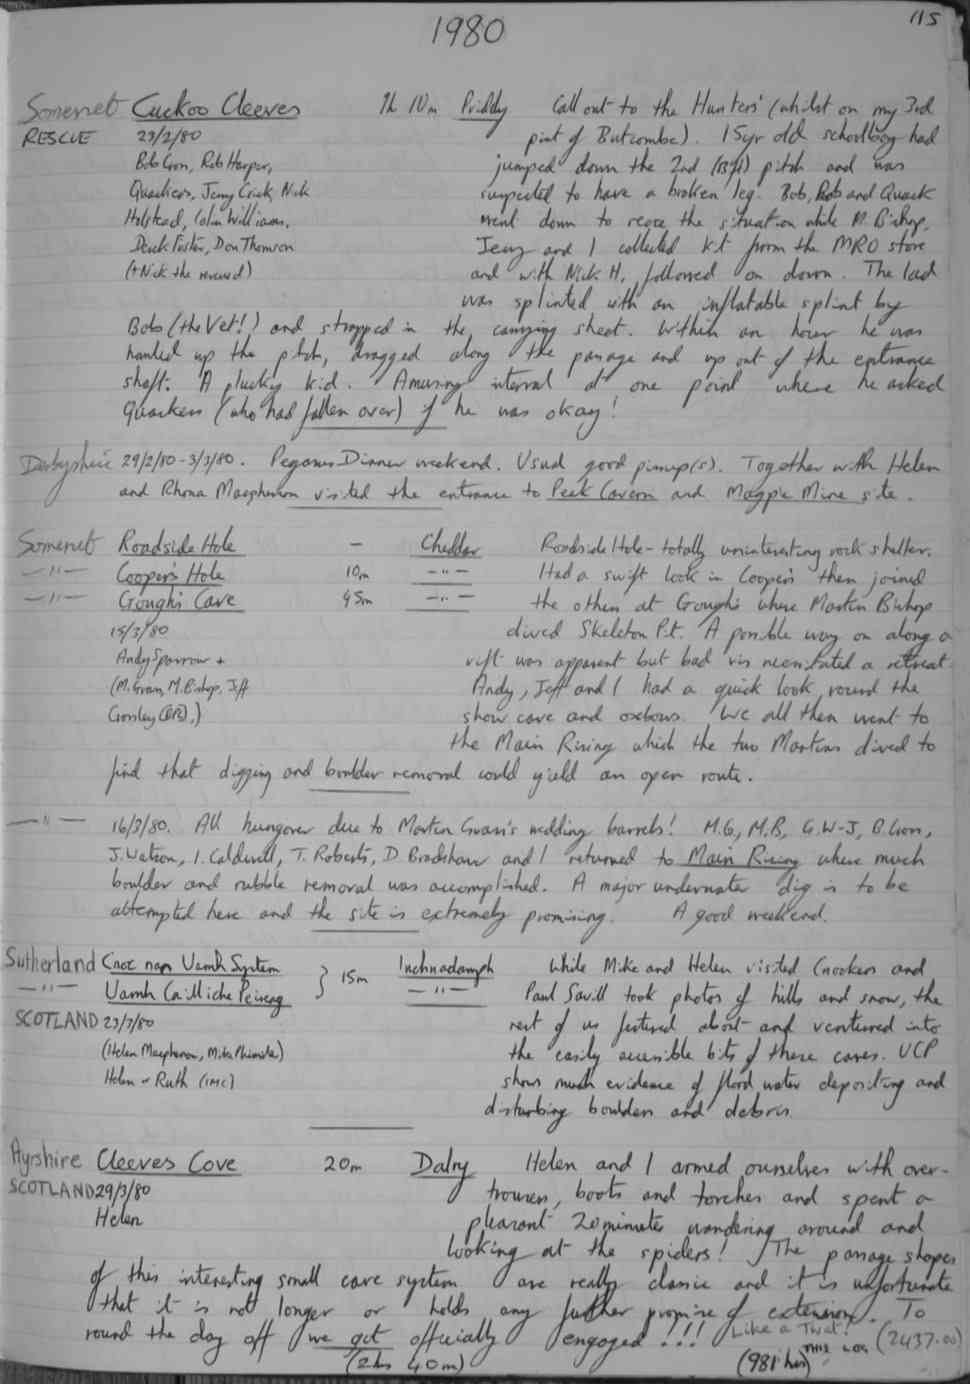 115
1980
Somerset Cuckoo Cleeves 1h 10m Priddy Call out to the Hunters' (whilst on my 3rd
RESCUE 23/2/80 pint of Butcombe). 15yr old schoolboy had
Bob Cross, Rob Harper, jumped down the 2nd pitch and was
Quackers, Jeremy Nick suspected to have a broken leg. Bob, Rob and Quack
Colin Williams, went down to recce the situation while M. Bishop,
Don Thomson Jerry and I collected kit from the MRO store
(+ Nick the rescued) and with Nick H, followed on down. The lad
was splinted with an inflatable splint by
Bob (the Vet!) and strapped in the carrying sheet. Within an hour he was
hauled up the pitch, dragged along the passage and up out of the entrance
shaft. A plucky kid. Amusing interval at one point where he asked
Quackers (who had fallen over) if he was okay!
Derbyshire 29/2/80 - 3/3/80. Pegasus Dinner weekend. Usual good pissup(s). Together with Helen
and Rhona Macpherson visited the entrance to Peak Cavern and Magpie Mine site.
Somerset Roadside Hole - Cheddar Roadside Hole - totally uninteresting rock shelter.
-"- Cooper's Hole 10m -"- Had a swift look in Coopers then joined
-"- Gough's Cave 45m -"- the others at Gough's where Martin Bishop
15/3/80 dived Skeleton Pit. A possible way on along a
Andy Sparrow + rift was apparent but bad vis necessitated a retreat.
(M. Grass, M. Bishop, Jeff Andy, Jeff and I had a quick look round the
show cave and oxbows. We all then went to
the Main Rising which the two Martins dived to
find that digging and boulder removal could yield an open route.
-"- 16/3/80. All hungover due to Martin Grass's wedding barrels! M.G, M.B, G.W-J, B. Cross,
J. Watson, I. Caldwell, T. Roberts, D. Bradshaw and I returned to Main Rising where much
boulder and rubble removal was accomplished. A major underwater dig is to be
attempted here and the site is extremely promising. A good weekend.
Sutherland Cnoc nan Uamh System } 15m Inchnadamph While Mike and Helen visited Cnockers and
-"- Uamh Cailliche Peireag -"- Paul Savill took photos of hills and snow, the
SCOTLAND 23/3/80 rest of us festered about and ventured into
(Helen Macpherson, Mike the easily accessible bits of these caves. UCP
Helen + Ruth (IMC) shows much evidence of flood water depositing and
disturbing boulders and debris.
Ayrshire Cleeves Cove 20m Dalry Helen and I armed ourselves with over-
SCOTLAND 29/3/80 trousers, boots and torches and spent a
Helen pleasant 20 minutes wandering around and
looking at the spiders! The passage shapes
of this interesting small cave system are really classic and it is unfortunate
that it is not longer or holds any further promise of extension. To
round the day off we got officially engaged!!! Like a Twat!
(2hrs 40m) (981 hrs) THIS LOG (2437.00)